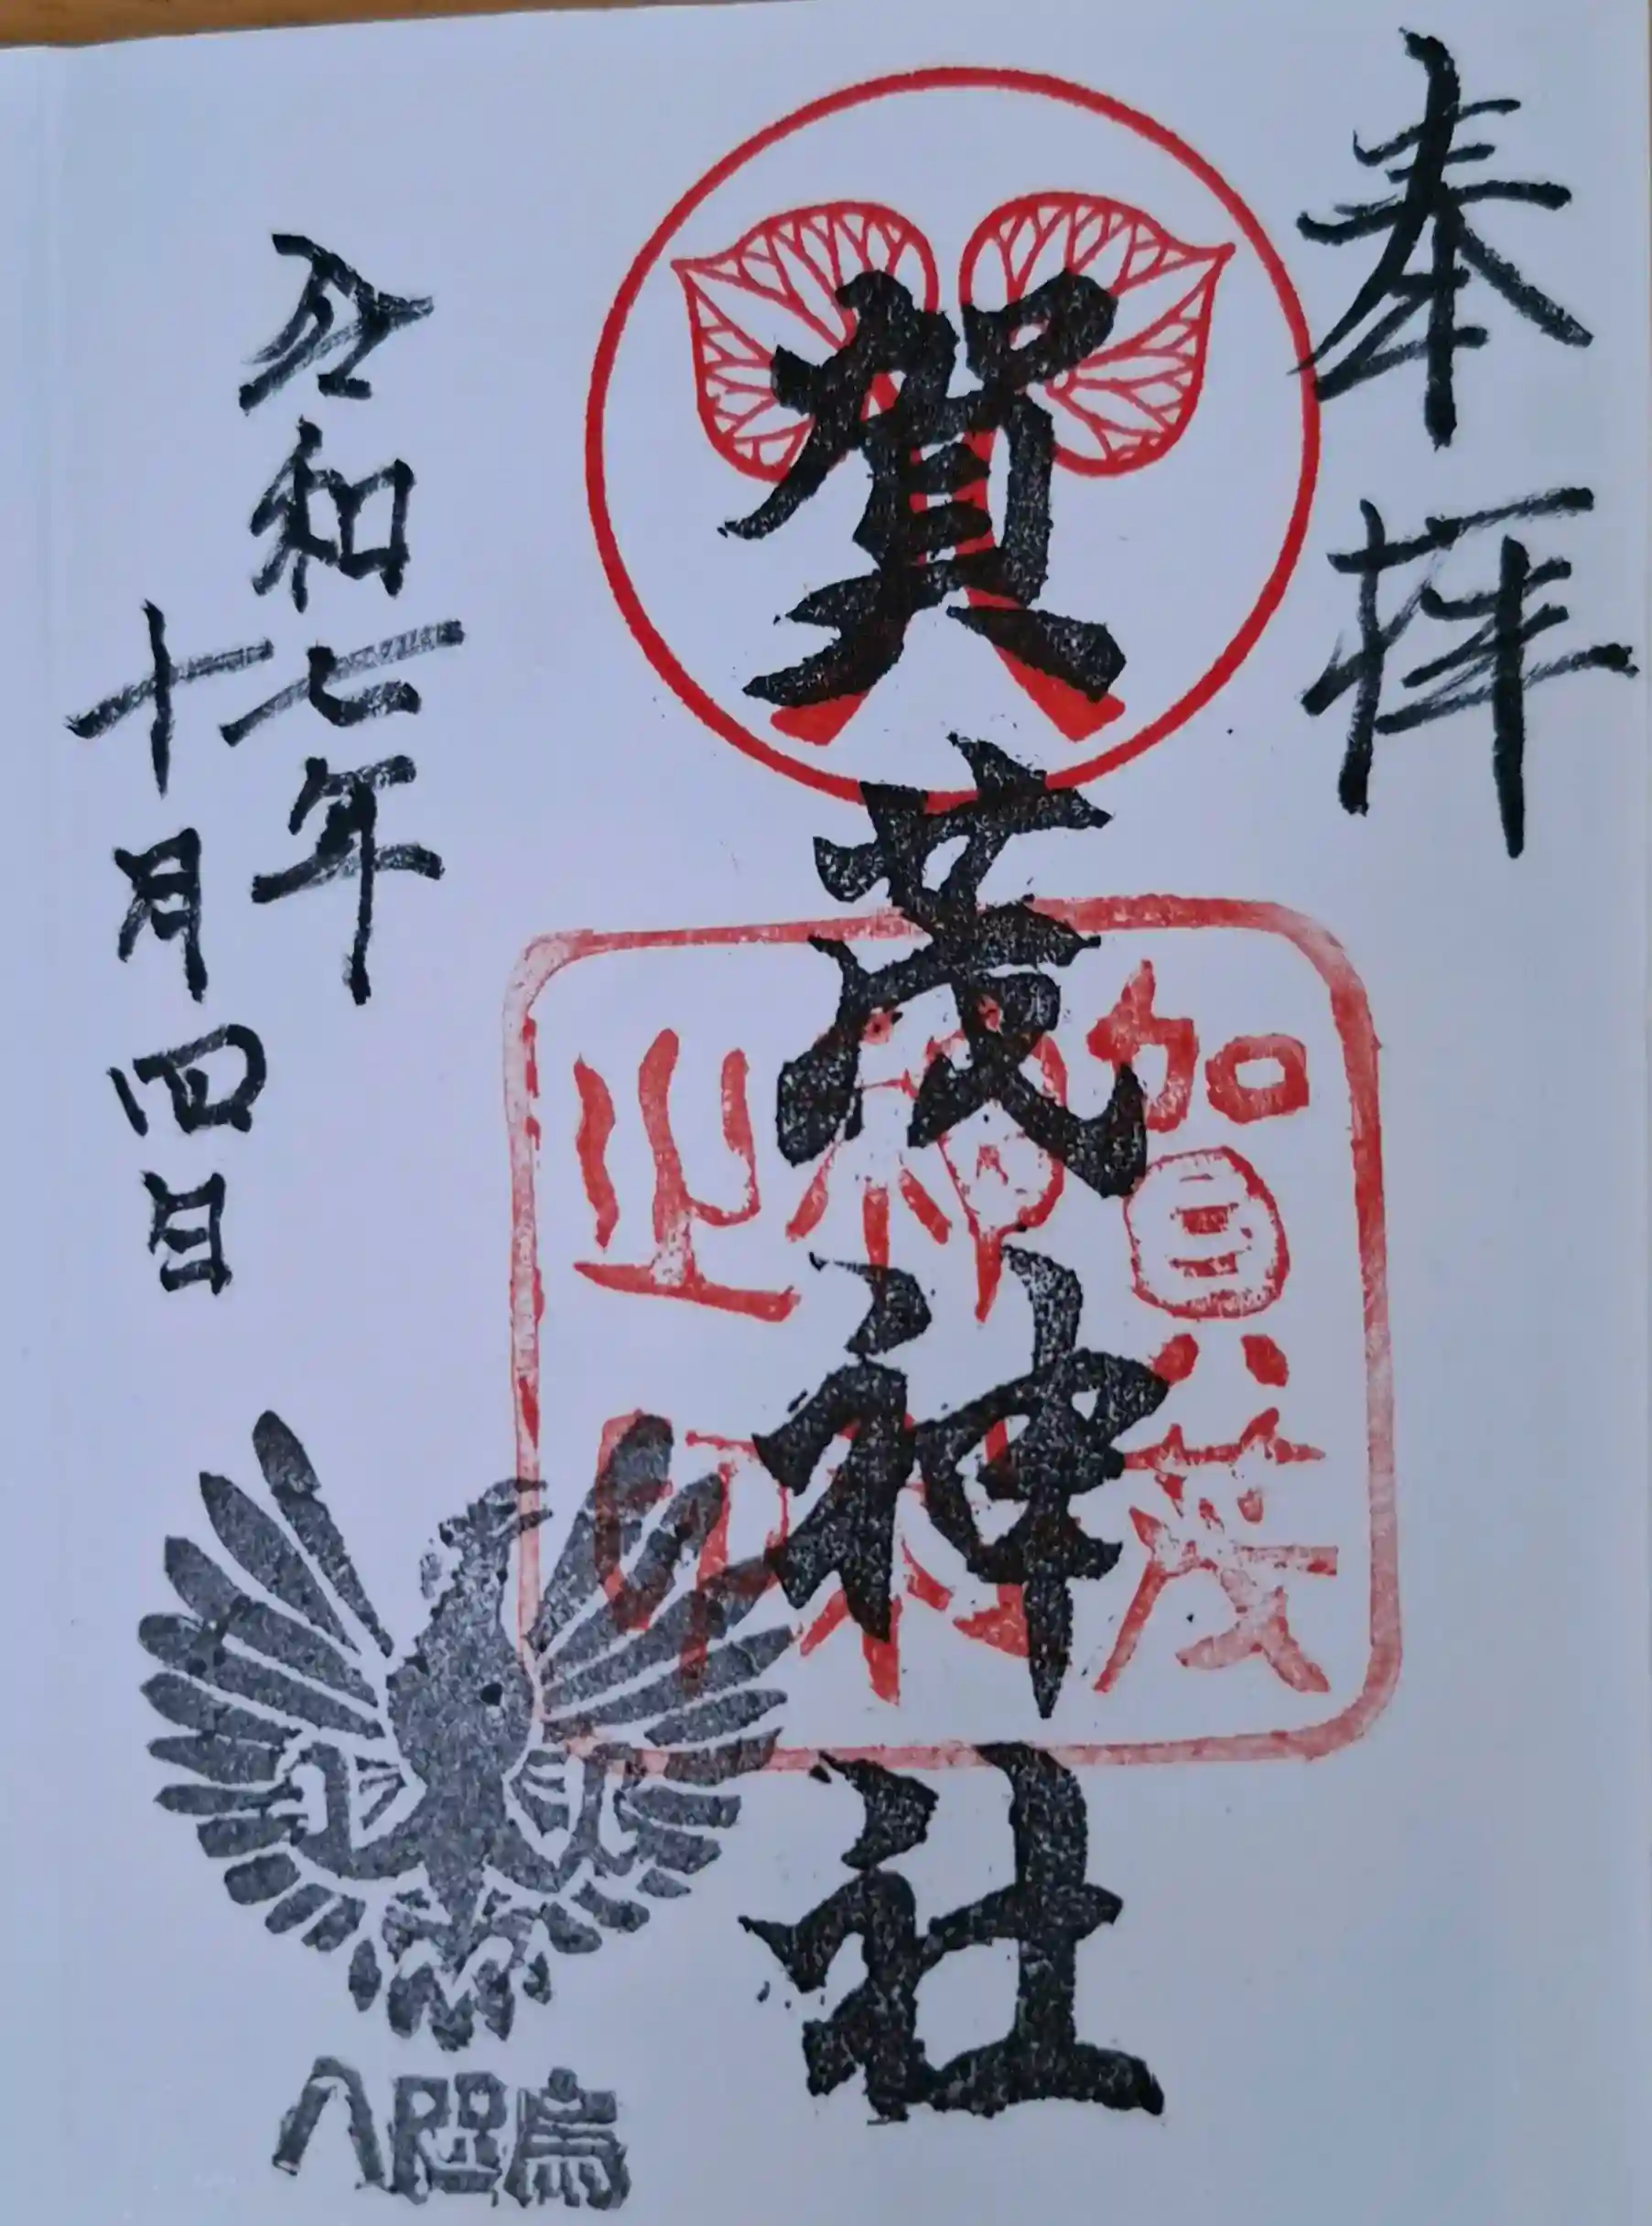 奉拝
賀茂神社
加賀茂
神社
之印
令和七年
十月四日
八咫烏